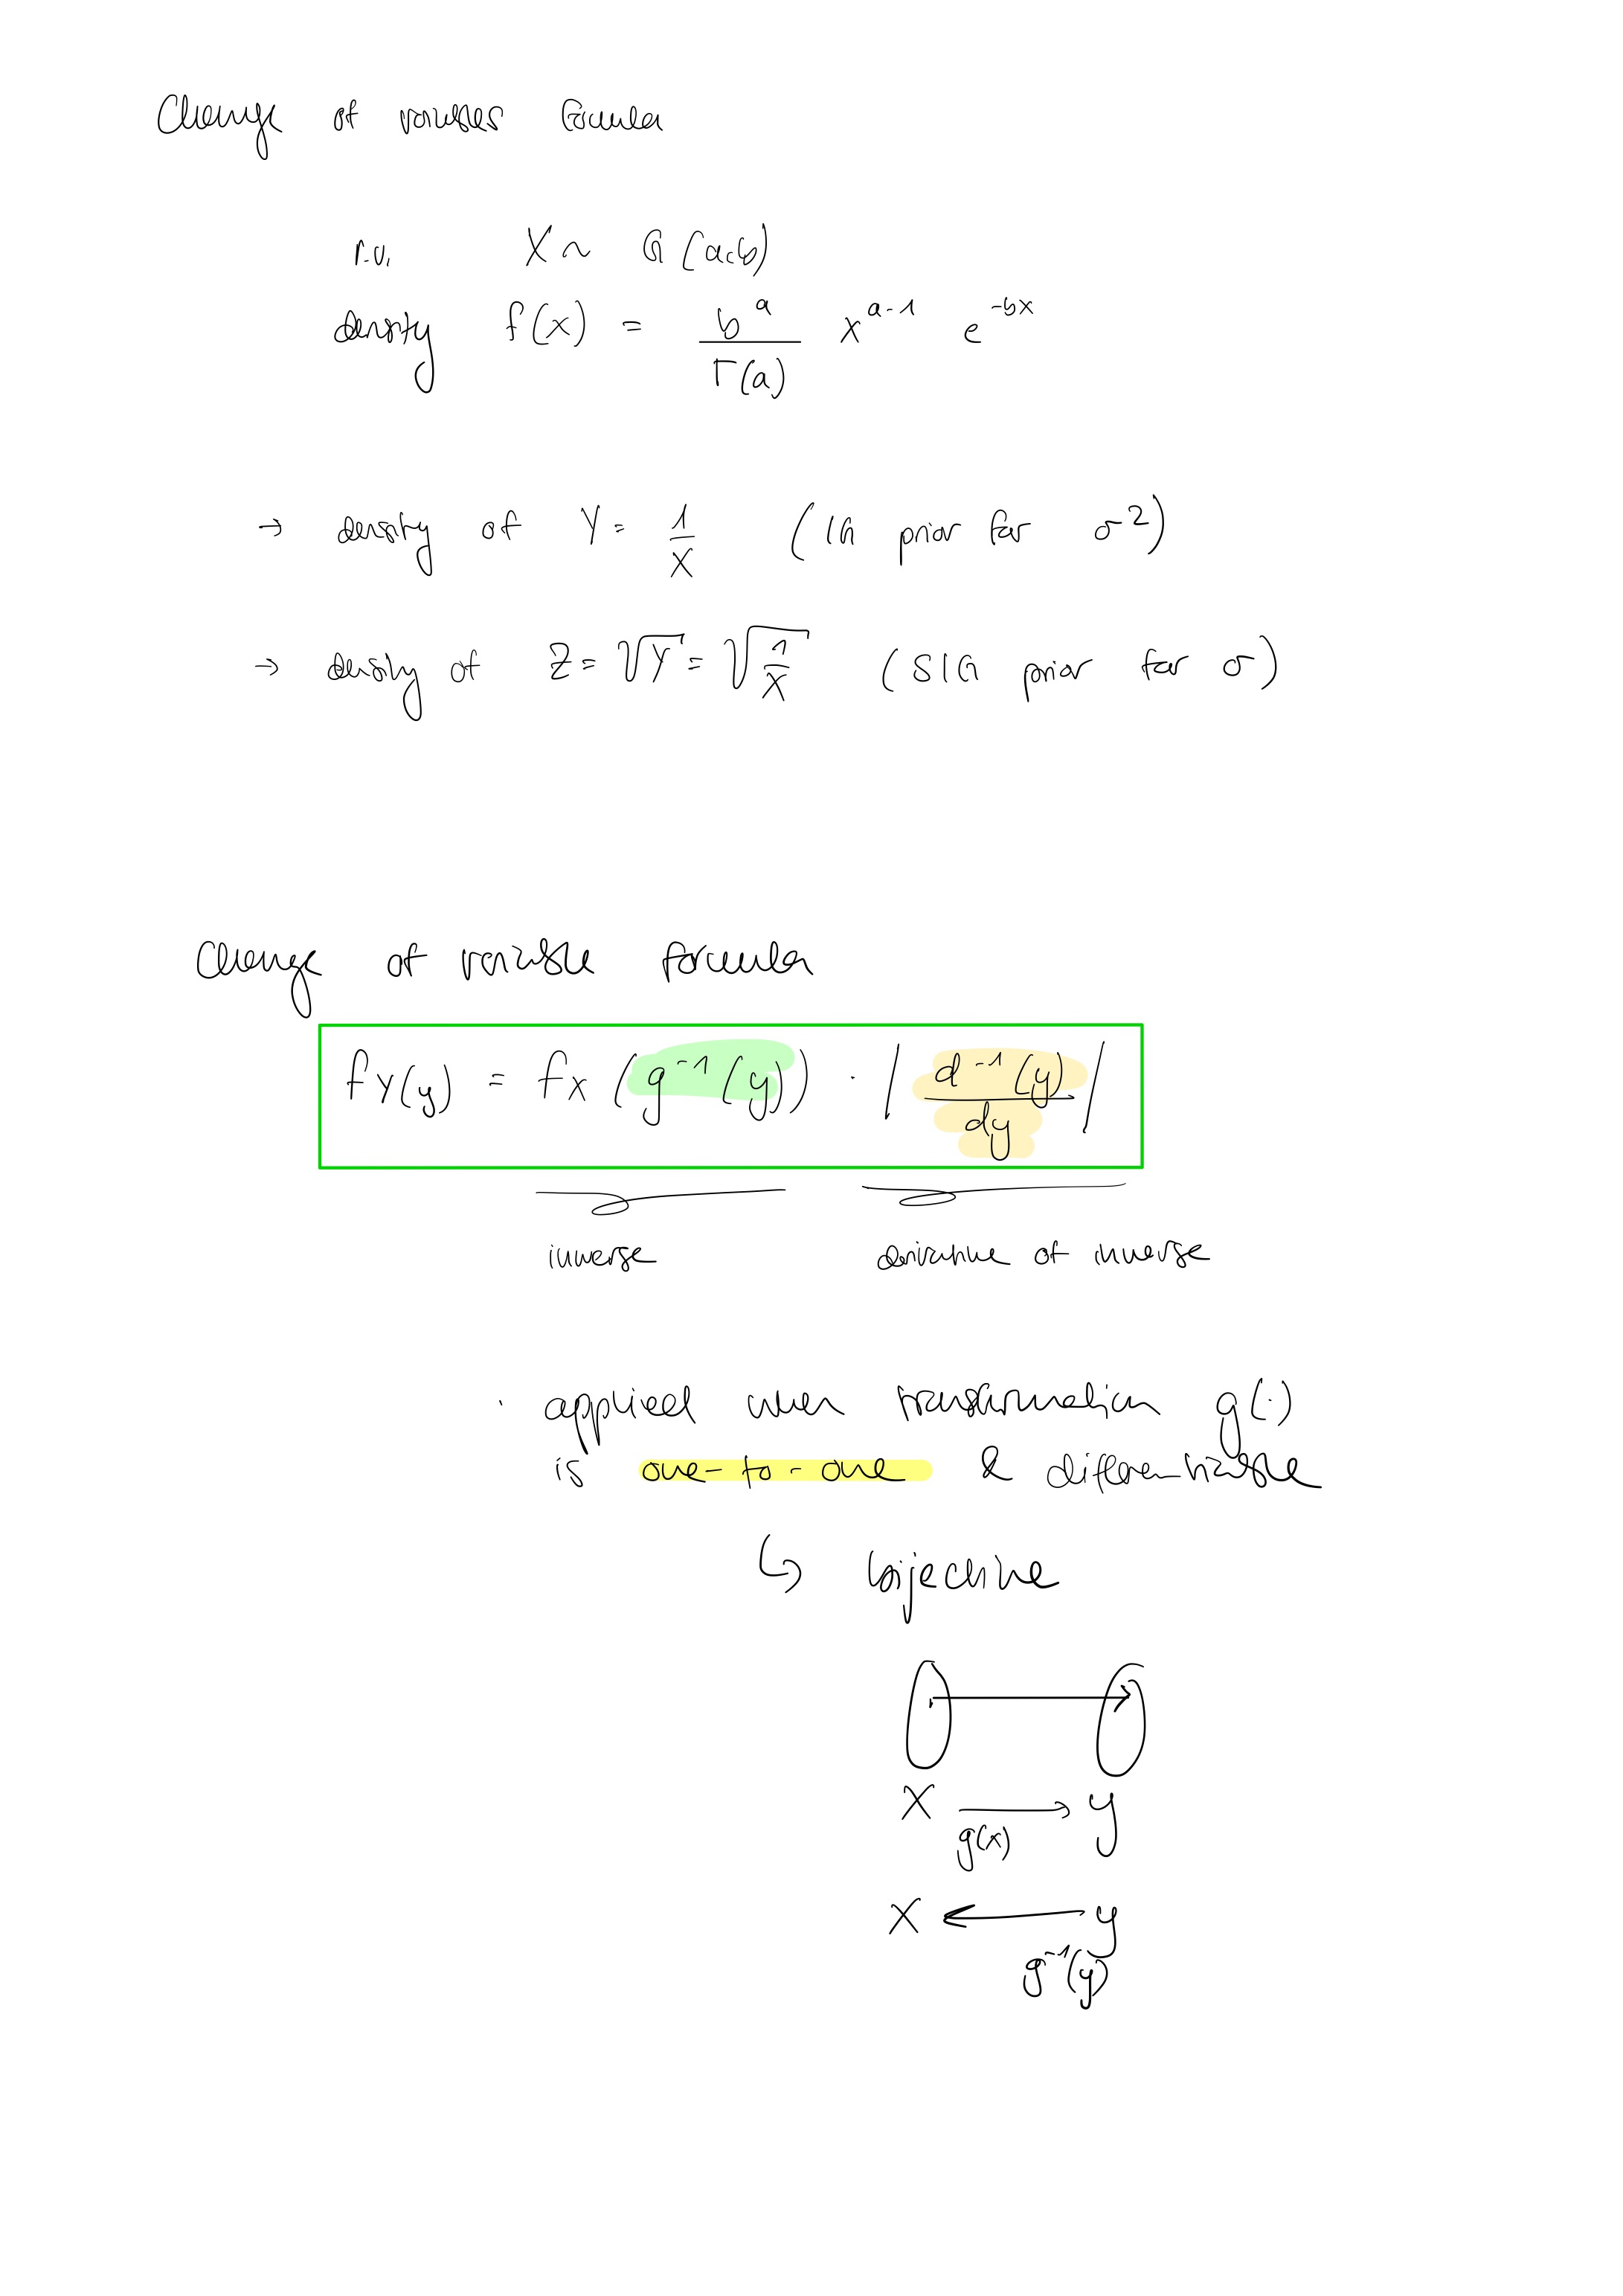 Change of variables formula
r.v. X ~ G(a,b)
density f(x) = b^a / Γ(a) x^{a-1} e^{-bx}
→ density of Y = 1/X (IG prior for σ²)
→ density of Z = √Y = √(1/X) (SIG prior for σ)
Change of variable formula
f_Y(y) = f_X(g⁻¹(y)) · | d⁻¹(y) / dy |
inverse derivative of inverse
· applied when transformation g(·)
is one-to-one & differentiable
↳ bijective
X → y
g(x)
X ← y
g⁻¹(y)